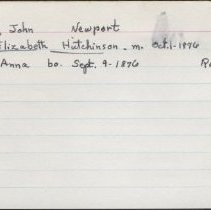 , John Newport
Elizabeth Hutchinson - m. Oct. 1 - 1876
Anna bo. Sept. 9 - 1876